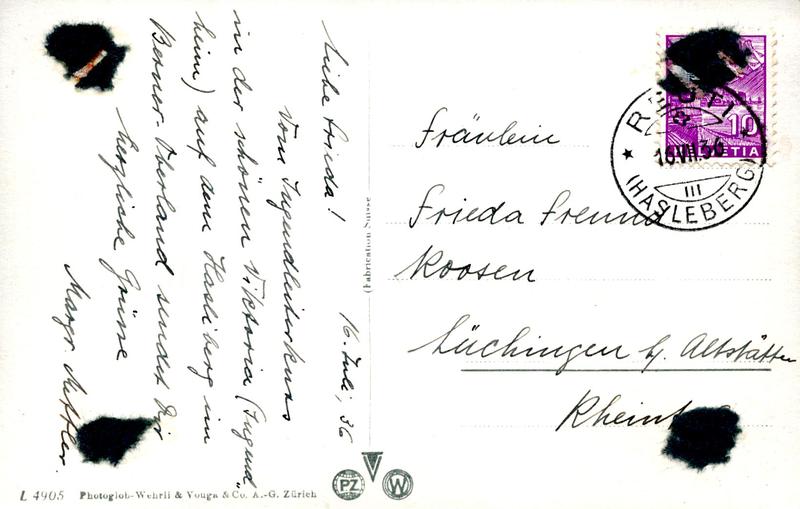 Liebe Frieda!
16. Juli, 36
Vom Jugendleiterkurs
in der schönen Viktoria (Jugend-
heim) auf dem Hasliberg im
Berner Oberland sendet Dir
herzliche Grüsse
Margr.
Fräulein
Frieda Freund
Koosen
Lüchingen b. Altstätten
(Fabrication Suisse
REUTI
16.VII.36
III
(HASLEBERG)
10
HELVETIA
L 4905 Photoglob-Wehrli & Vouga & Co. A.-G. Zürich
PZ
W